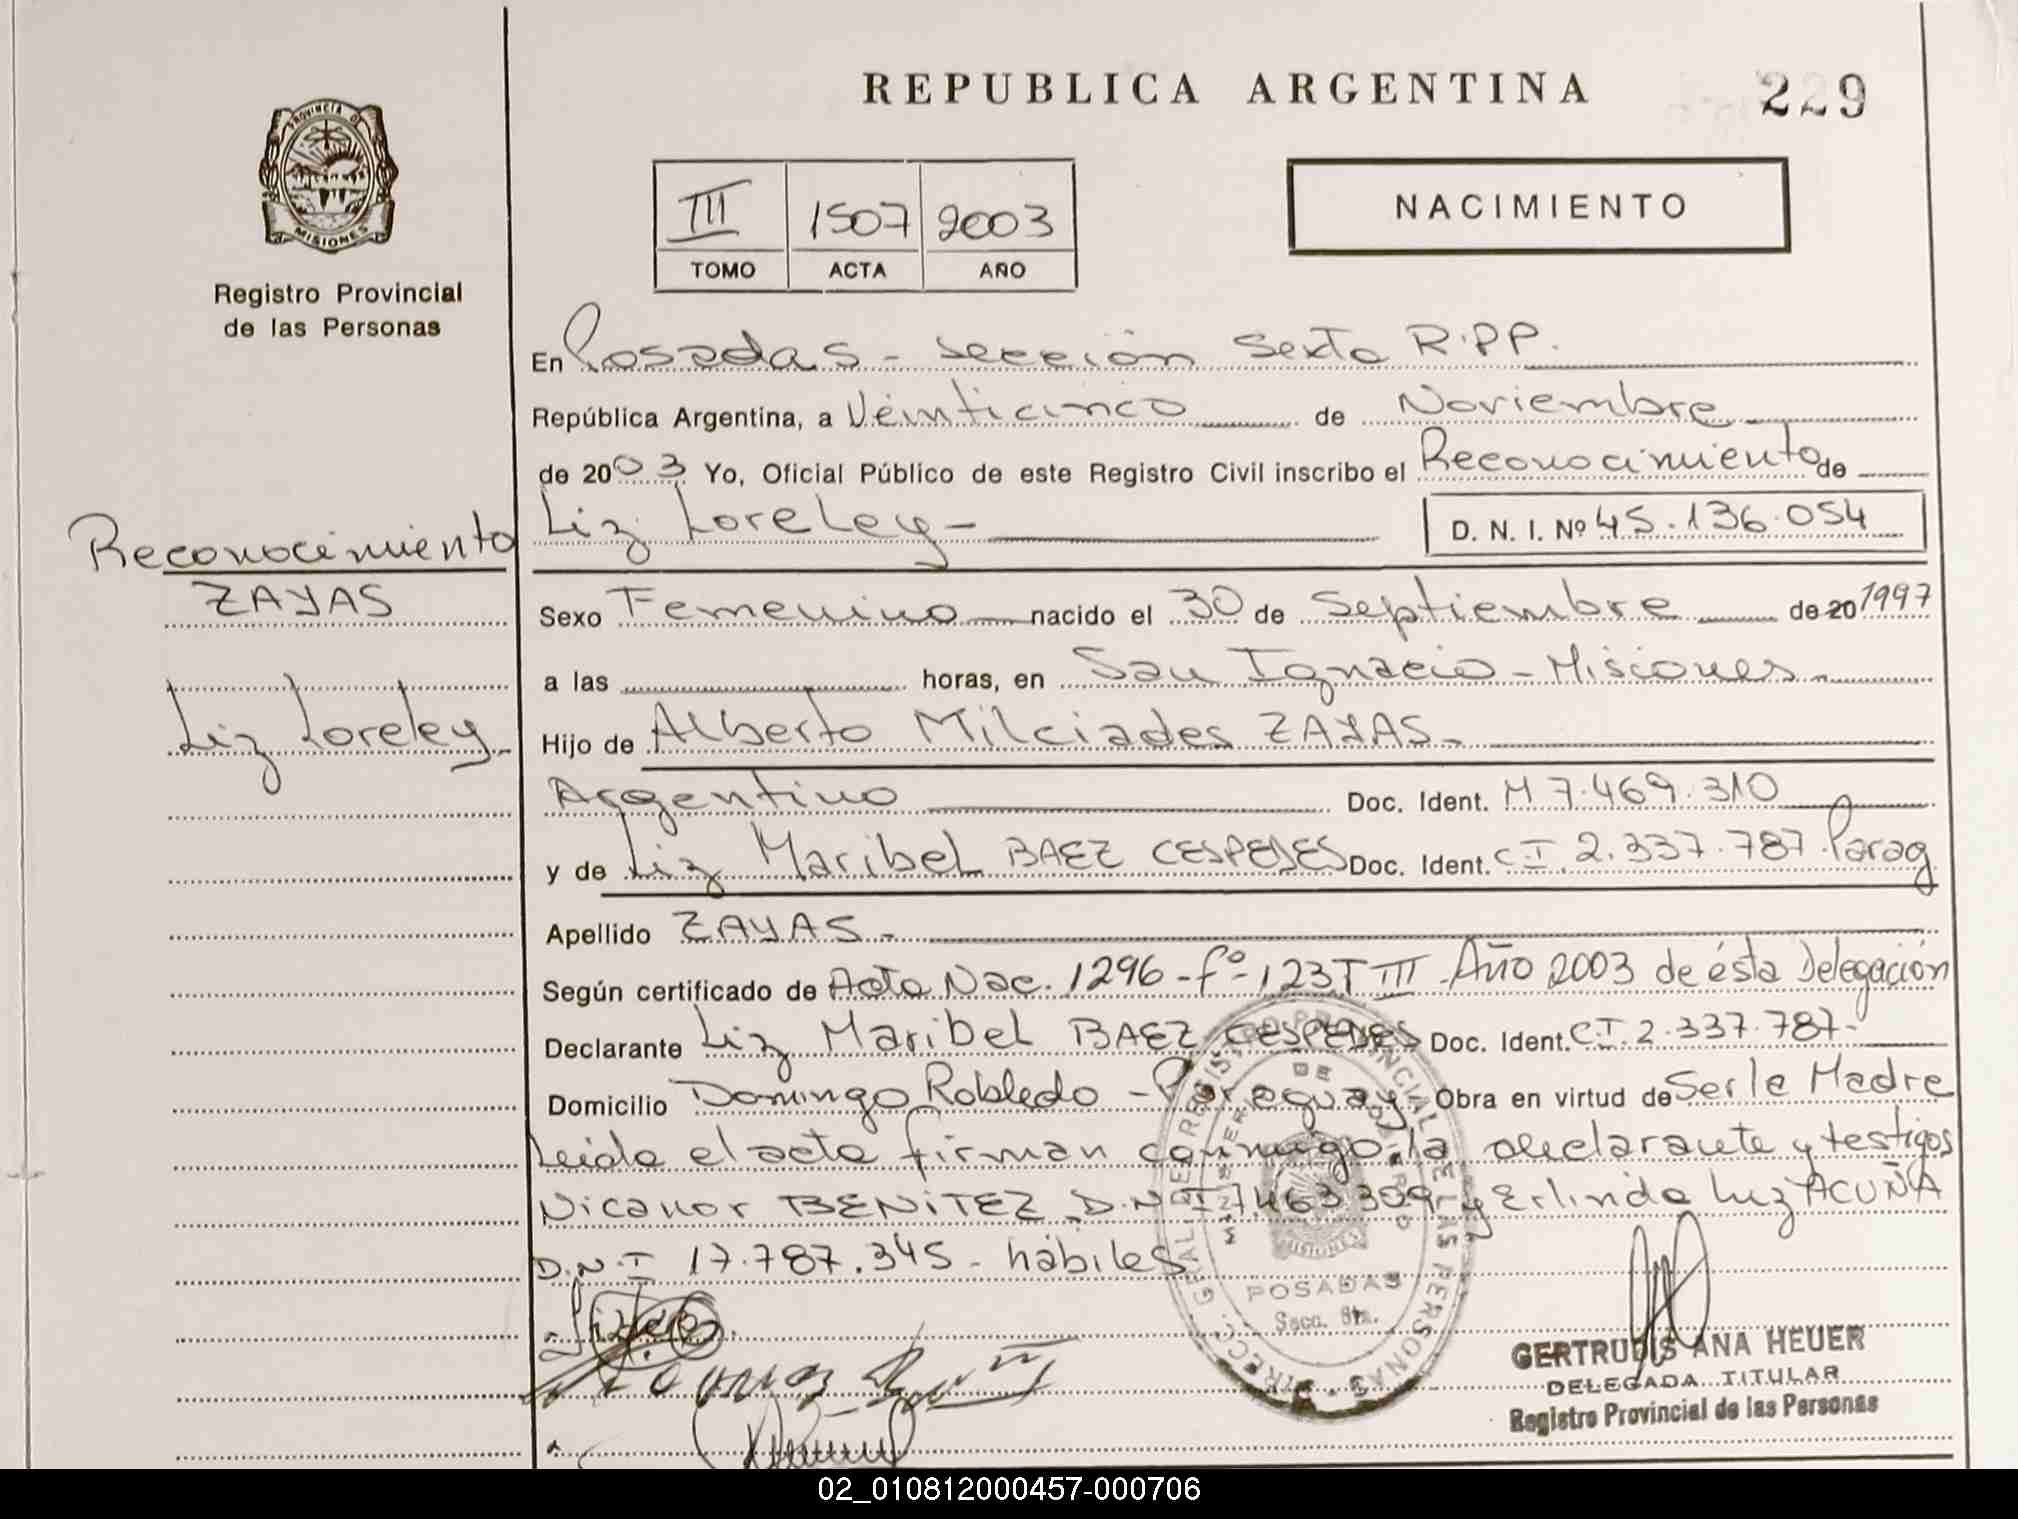 REPUBLICA ARGENTINA
229
PROVINCIA DE
MISIONES
Registro Provincial
de las Personas
III 1507 2003
TOMO ACTA AÑO
NACIMIENTO
En Posadas - sección Sexta R.P.P.
República Argentina, a Veinticinco de Noviembre
de 2003 Yo, Oficial Público de este Registro Civil inscribo el Reconocimiento de
Liz Loreley - D. N. I. Nº 45.136.054
Reconocimiento
ZAYAS
Liz Loreley
Sexo Femenino nacido el 30 de Septiembre de 20 1997
a las horas, en San Ignacio - Misiones
Hijo de Alberto Milciades ZAYAS -
Argentino Doc. Ident. M 7.469.310
y de Liz Maribel BAEZ CESPEDES Doc. Ident. C I. 2.337.787 Parag
Apellido ZAYAS -
Según certificado de Acta Nac. 1296 - fº - 123 T III Año 2003 de ésta Delegación
Declarante Liz Maribel BAEZ CESPEDES Doc. Ident. C.I. 2.337.787 -
Domicilio Domingo Robledo - Paraguay Obra en virtud de Ser le Madre
Leida el acta firman conmigo la declarante y testigos
Nicanor BENiTEZ D.N.I 7463309 y Erlinda Luz ACUÑA
D.N.I 17.787.345 - hábiles
DIRECC. GRAL. DE REGISTRO PROVINCIAL DE LAS PERSONAS
MINISTERIO DE GOBIERNO
MISIONES
POSADAS
Secc. 6ta.
GERTRUDIS ANA HEUER
DELEGADA TITULAR
Registro Provincial de las Personas
02_010812000457-000706